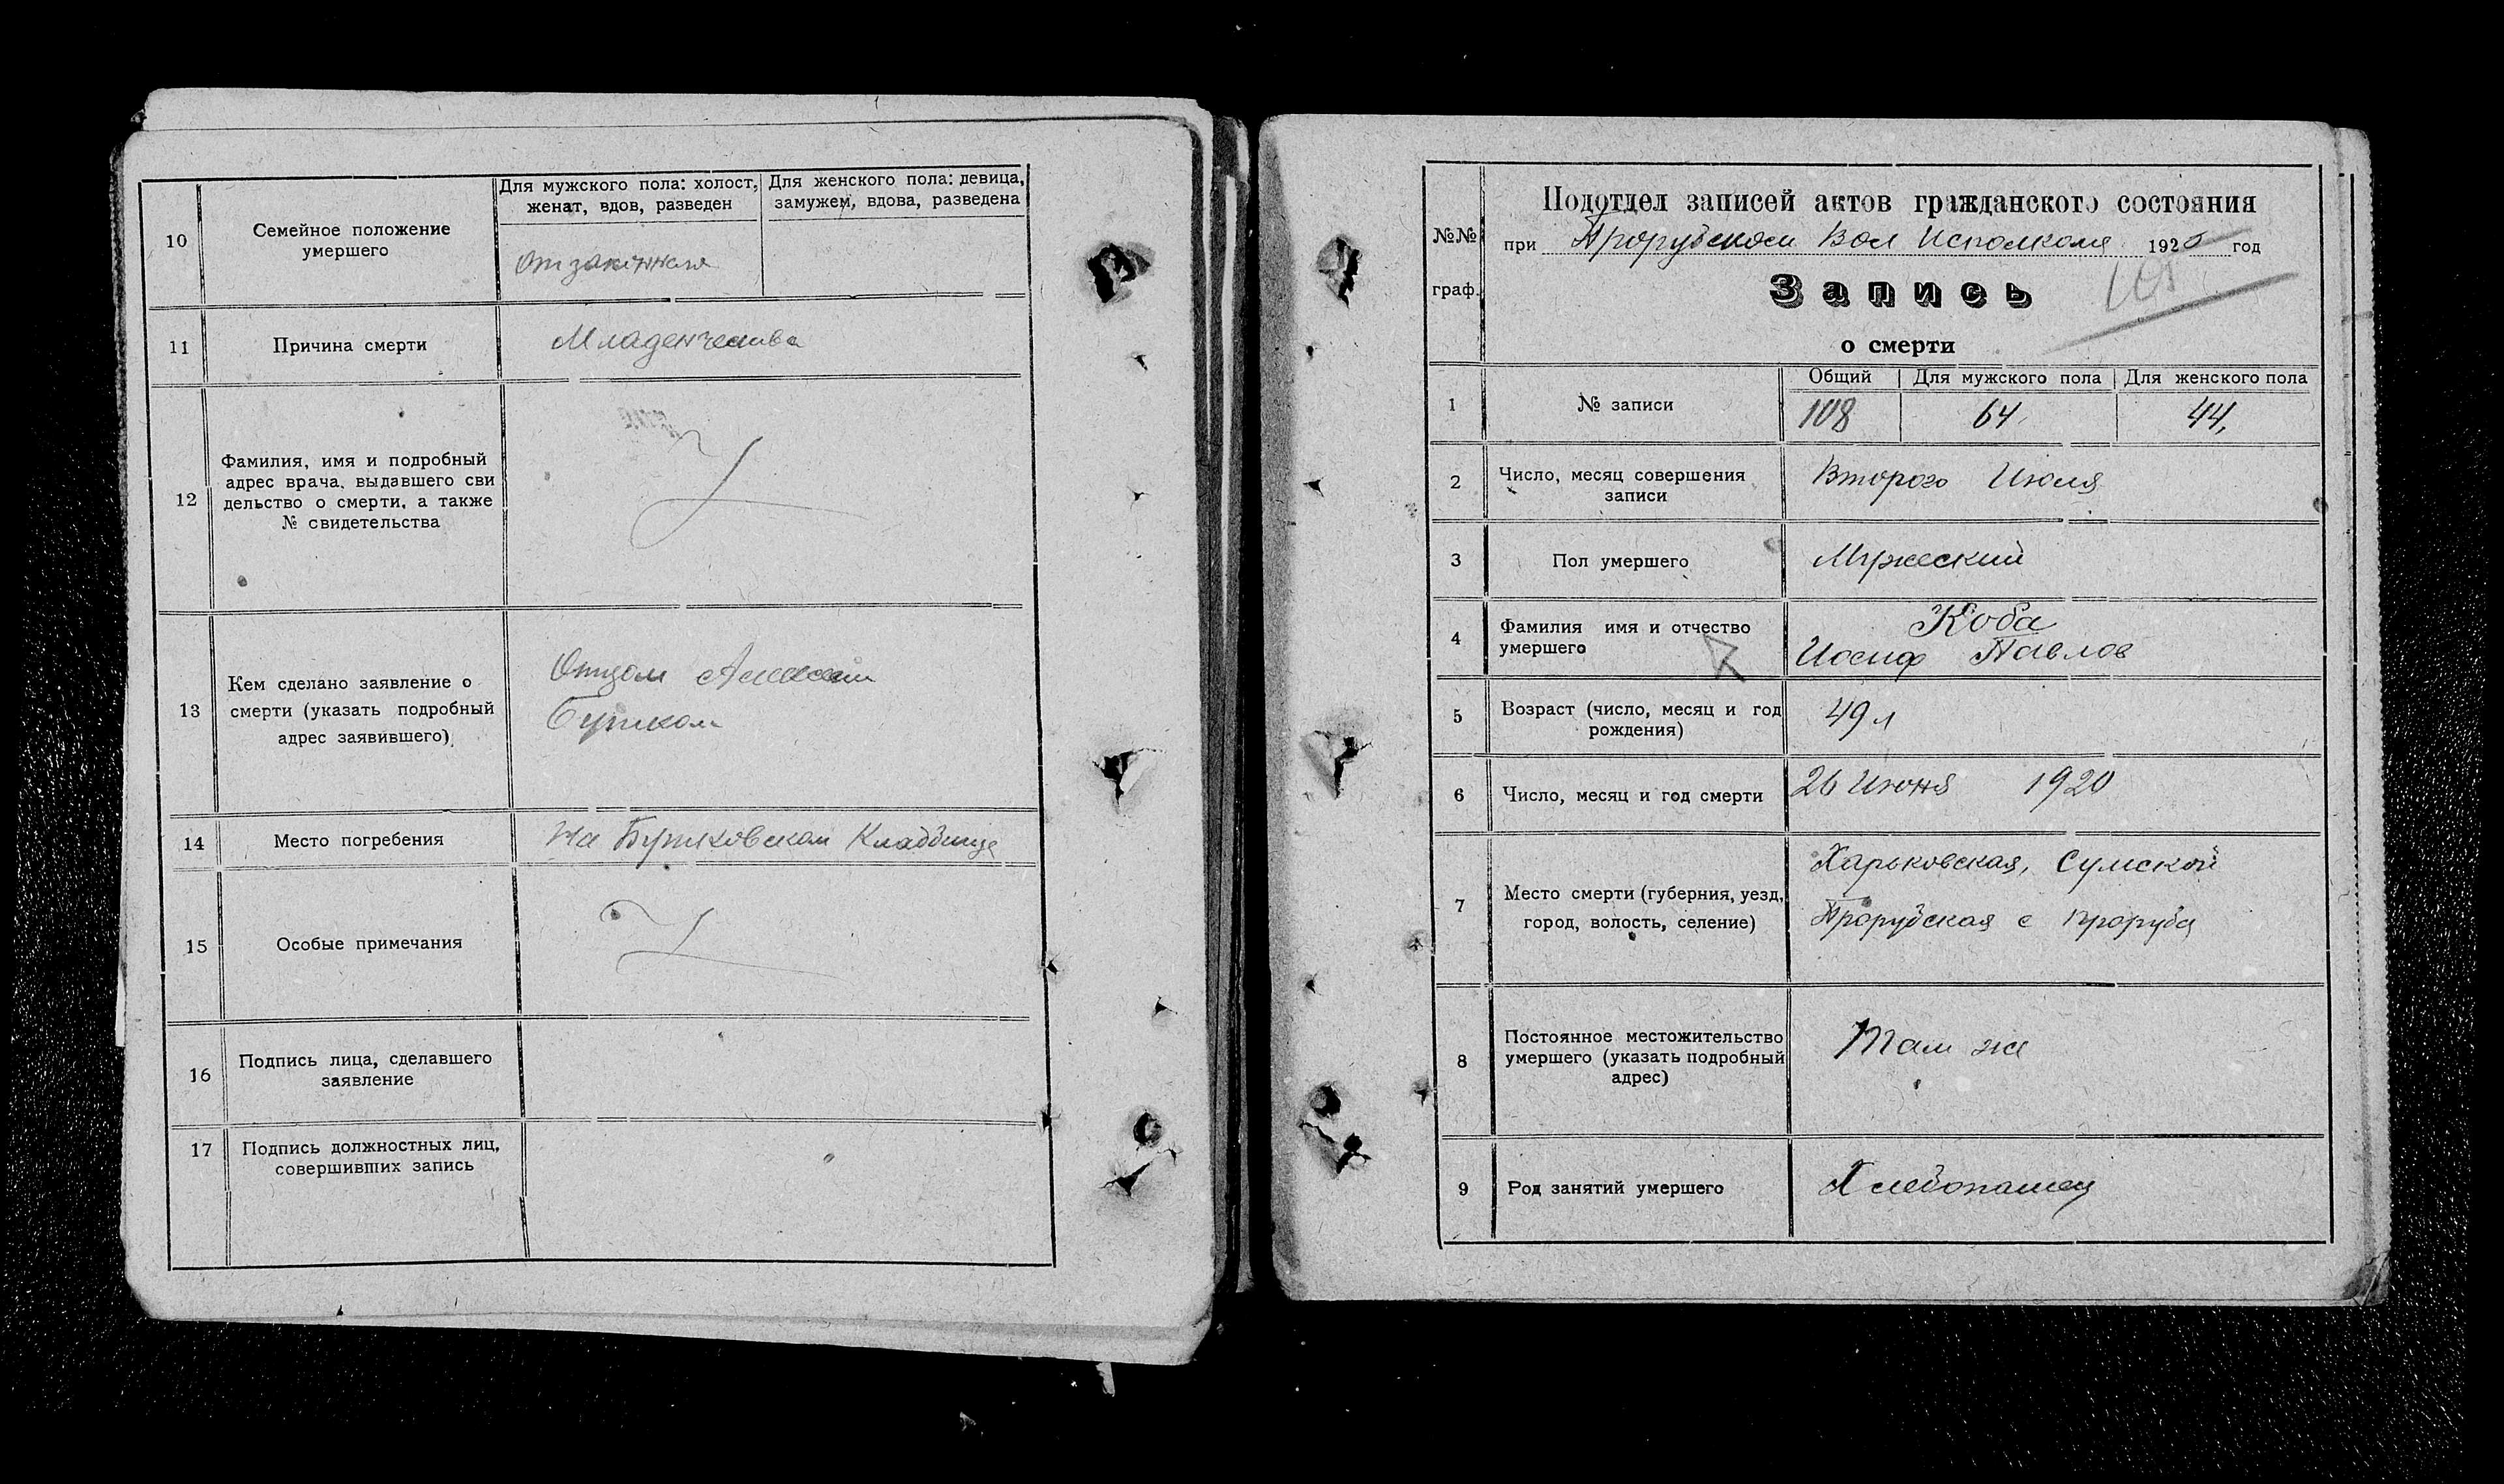 10
Семейное положение
умершего
Для мужского пола: холост,
женат, вдов, разведен
Для женского пола: девица,
замужем, вдова, разведена
11
Причина смерти
Младенчества
12
Фамилия, имя и подробный
адрес врача, выдавшего сви
дельство о смерти, а также
№ свидетельства
13
Кем сделано заявление о
смерти (указать подробный
адрес заявившего)
Отцом
14
Место погребения
На Бутковском Кладбище
15
Особые примечания
16
Подпись лица, сделавшего
заявление
17
Подпись должностных лиц,
совершивших запись
№№
граф.
Подотдел записей актов гражданского состояния
при Прорубском Вол Исполкоме 1920 год
Запись
о смерти
1
№ записи
Общий
Для мужского пола
Для женского пола
108
64
44,
2
Число, месяц совершения
записи
Второго Июля
3
Пол умершего
Мужеский
4
Фамилия имя и отчество
умершего
Коба
Иосиф Павлов
5
Возраст (число, месяц и год
рождения)
49 л
6
Число, месяц и год смерти
26 Июня 1920
7
Место смерти (губерния, уезд,
город, волость, селение)
Харьковская, Сумской
Прорубская с Проруба
8
Постоянное местожительство
умершего (указать подробный
адрес)
Там же
9
Род занятий умершего
Хлебопашец